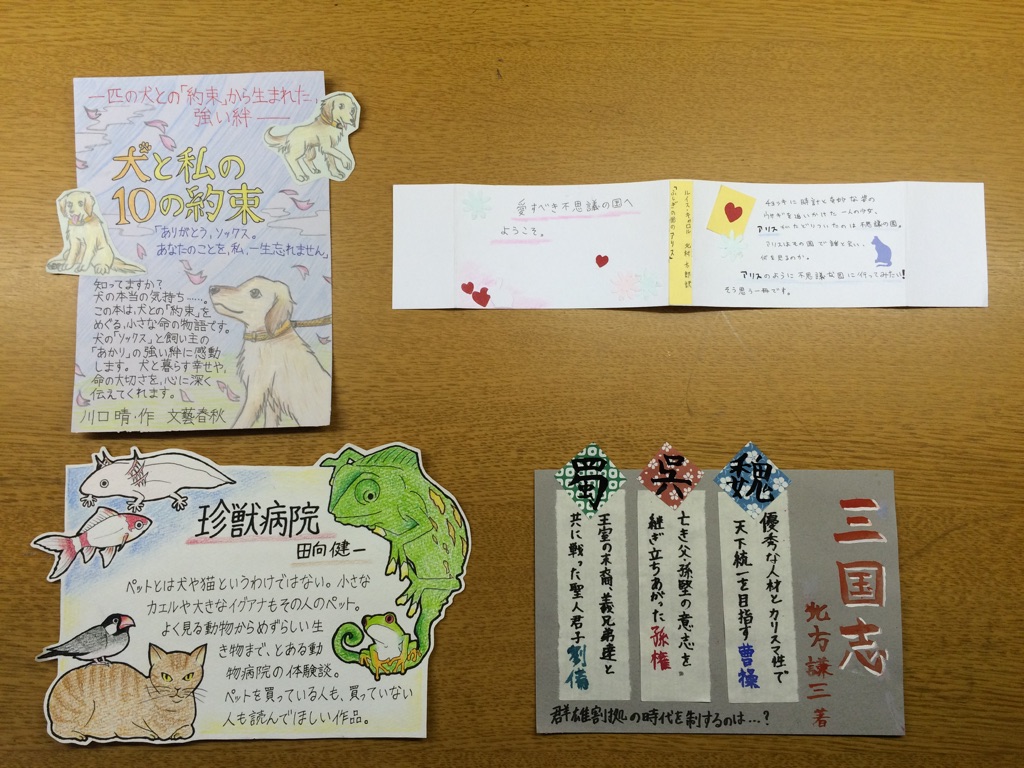 一匹の犬との「約束」から生まれた
強い絆──
犬と私の
10の約束
「ありがとう、ソックス。
あなたのことを、私、一生忘れません」
知ってますか?
犬の本当の気持ち……。
この本は、犬との「約束」を
めぐる、小さな命の物語です。
犬の「ソックス」と飼い主の
「あかり」の強い絆に感動
します。犬と暮らす幸せや、
命の大切さを、心に深く
伝えてくれます。
川口 晴・作 文藝春秋
愛すべき不思議の国へ
ようこそ。
『ふしぎの国のアリス』
ルイス・キャロル 北村太郎訳
チョッキに時計と奇妙な姿の
うさぎを追いかけた一人の少女、
アリスがたどりついたのは不思議の国。
アリスはその国で誰と会い、
何を見るのか。
アリスのように不思議な国に行ってみたい!
そう思う一冊です。
珍獣病院
田向健一
ペットとは犬や猫というわけではない。小さな
カエルや大きなイグアナもその人のペット。
よく見る動物からめずらしい生
き物まで、とある動
物病院の体験談。
ペットを買っている人も、買っていない
人も読んでほしい作品。
三国志
北方謙三 著
魏
優秀な人材とカリスマ性で
天下統一を目指す曹操
呉
亡き父・孫堅の意志を
継ぎ立ちあがった孫権。
蜀
王室の末裔、義兄弟達と
共に戦った聖人君子劉備
群雄割拠の時代を制するのは…?